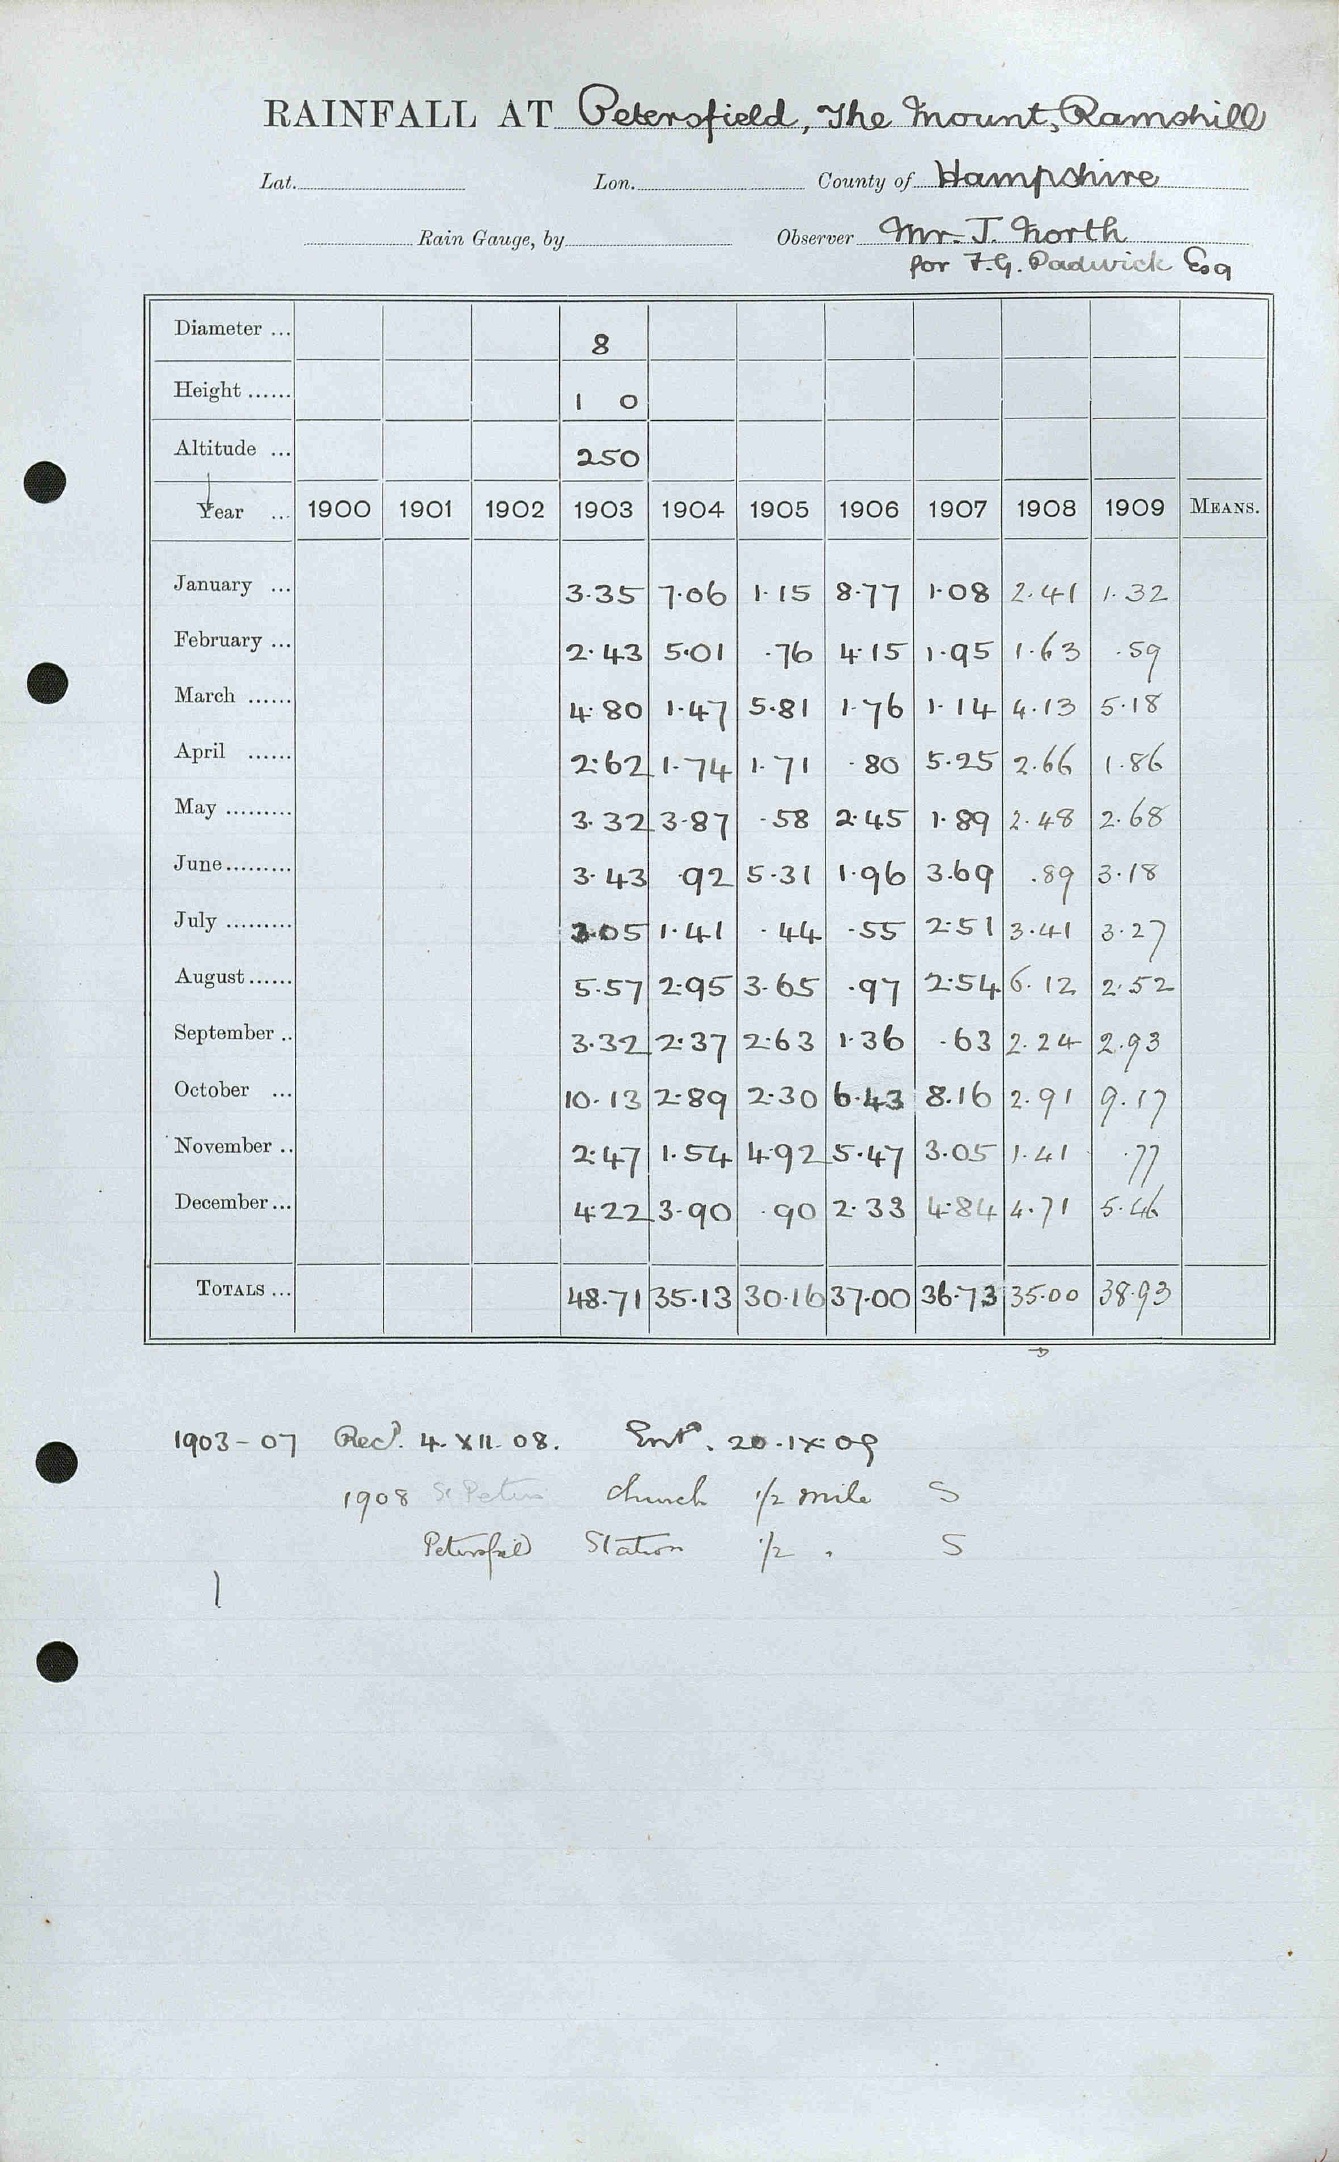 RAINFALL AT Petersfield, The Mount, Ramshill
Lat. Lon. County of Hampshire
Rain Gauge, by Observer Mr. J. North
for F.G. Padwick Esq
Diameter ... 8
Height ...... 1 0
Altitude ... 250
Year ... 1900 1901 1902 1903 1904 1905 1906 1907 1908 1909 MEANS.
January ... 3.35 7.06 1.15 8.77 1.08 2.41 1.32
February ... 2.43 5.01 .76 4.15 1.95 1.63 .59
March ...... 4.80 1.47 5.81 1.76 1.14 4.13 5.18
April ...... 2.62 1.74 1.71 .80 5.25 2.66 1.86
May ......... 3.32 3.87 .58 2.45 1.89 2.48 2.68
June......... 3.43 .92 5.31 1.96 3.69 .89 3.18
July ......... 3.05 1.41 .44 .55 2.51 3.41 3.27
August...... 5.57 2.95 3.65 .97 2.54 6.12 2.52
September .. 3.32 2.37 2.63 1.36 .63 2.24 2.93
October ... 10.13 2.89 2.30 6.43 8.16 2.91 9.17
November .. 2.47 1.54 4.92 5.47 3.05 1.41 .77
December... 4.22 3.90 .90 2.33 4.84 4.71 5.46
TOTALS ... 48.71 35.13 30.16 37.00 36.73 35.00 38.93
1903-07 Recd. 4.XII.08. Entd. 20.IX.09
1908 St Peters Church 1/2 mile S
Petersfield Station 1/2 " S